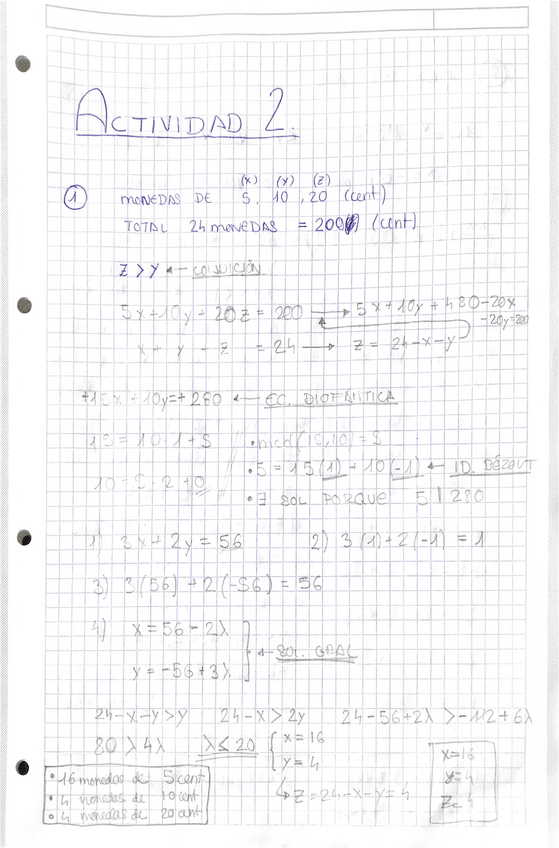 ACTIVIDAD 2.
(x) (y) (z)
① MONEDAS DE 5, 10, 20 (cent)
TOTAL 24 MONEDAS = 200 (cent)
z > y ← CONDICIÓN
5x + 10y + 20z = 200 → 5x + 10y + 480 - 20x
- 20y = 200
x + y + z = 24 → z = 24 - x - y
+15x + 10y = + 280 ← EC. DIOFÁNTICA
15 = 10·1 + 5 • mcd(15,10) = 5
10 = 5·2 + 0 • 5 = 15(1) + 10(-1) ← ID. BÉZOUT
• ∃ SOL PORQUE 5 | 280
1) 3x + 2y = 56 2) 3(1) + 2(-1) = 1
3) 3(56) + 2(-56) = 56
4) x = 56 - 2λ
y = -56 + 3λ ← SOL. GRAL
24-x-y > y 24-x > 2y 24-56+2λ > -112+6λ
80 > 4λ λ ≤ 20 { x = 16
y = 4
↳ z = 24-x-y = 4
x=16
y=4
z=4
• 16 monedas de 5 cent
• 4 monedas de 10 cent
• 4 monedas de 20 cent